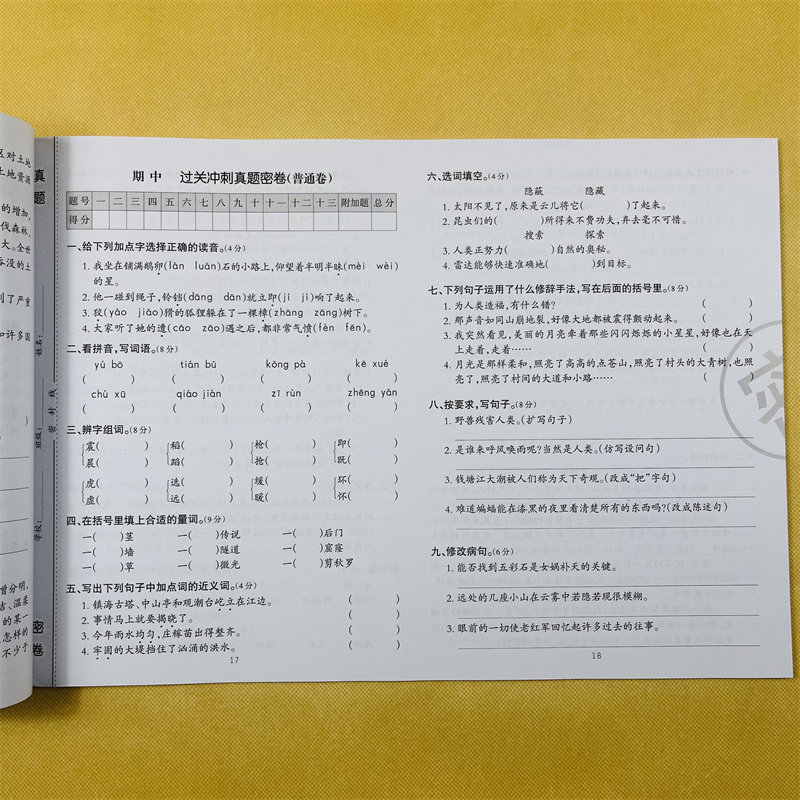 区对土地
土地资源
的增加,
伐森林,
大。全世
吞没的土
到了严重
和许多国
曾分明,
吉、温柔
的某一
怎样的
不少于
真
题
密
卷
姓名:
班级:
学校:
密 封 线
期 中 过关冲刺真题密卷(普通卷)
题 号 一 二 三 四 五 六 七 八 九 十 十一 十二 十三 附加题 总 分
得 分
一、给下列加点字选择正确的读音。(4分)
1. 我坐在铺满鹅卵(lǎn luǎn)石的小路上,仰望着半明半昧(mèi wèi)
的星。
2. 他一碰到绳子,铃铛(dāng dān)就立即(jí jì)响了起来。
3. 狡(yào jiǎo)猾的狐狸躲在了一棵樟(zhāng zāng)树下。
4. 大家听了她的遭(cāo zāo)遇之后,都非常气愤(fèn fēn)。
二、看拼音,写词语。(8分)
yú bō tián bǔ kǒng pà kē xué
( ) ( ) ( ) ( )
chù xū qiáo jiàn zī rùn zhēng yǎn
( ) ( ) ( ) ( )
三、辨字组词。(8分)
震( ) 稻( ) 枪( ) 即( )
晨( ) 蹈( ) 抢( ) 既( )
虎( ) 选( ) 缓( ) 环( )
虚( ) 远( ) 暖( ) 怀( )
四、在括号里填上合适的量词。(9分)
一( )茎 一( )传说 一( )后门
一( )墙 一( )隧道 一( )窟窿
一( )草 一( )微光 一( )剪秋罗
五、写出下列句子中加点词的近义词。(4分)
1. 镇海古塔、中山亭和观潮台屹立在江边。 ( )
2. 事情马上就要揭晓了。 ( )
3. 今年雨水均匀,庄稼苗出得整齐。 ( )
4. 牢固的大堤挡住了汹涌的洪水。 ( )
17
六、选词填空。(4分)
隐蔽 隐藏
1. 太阳不见了,原来是云儿将它( )了起来。
2. 昆虫们的( )所得来不费功夫,弃去毫不可惜。
搜索 探索
3. 人类正努力( )自然的奥秘。
4. 雷达能够快速准确地( )到目标。
七、下列句子运用了什么修辞手法,写在后面的括号里。(8分)
1. 为人类造福,有什么错? ( )
2. 那声音如同山崩地裂,好像大地都被震得颤动起来。 ( )
3. 我突然看见,美丽的月亮牵着那些闪闪烁烁的小星星,好像也在天
上走着,走着…… ( )
4. 月光是那样柔和,照亮了高高的点苍山,照亮了村头的大青树,也照
亮了,照亮了村间的大道和小路…… ( )
八、按要求,写句子。(8分)
1. 野兽残害人类。(扩写句子)
2. 是谁来呼风唤雨呢?当然是人类。(仿写设问句)
3. 钱塘江大潮被人们称为天下奇观。(改成“把”字句)
4. 难道蝙蝠能在漆黑的夜里看清楚所有的东西吗?(改成陈述句)
九、修改病句。(6分)
1. 能否找到五彩石是女娲补天的关键。
2. 远处的几座小山在云雾中若隐若现很模糊。
3. 眼前的一切使老红军回忆起许多过去的往事。
18
密